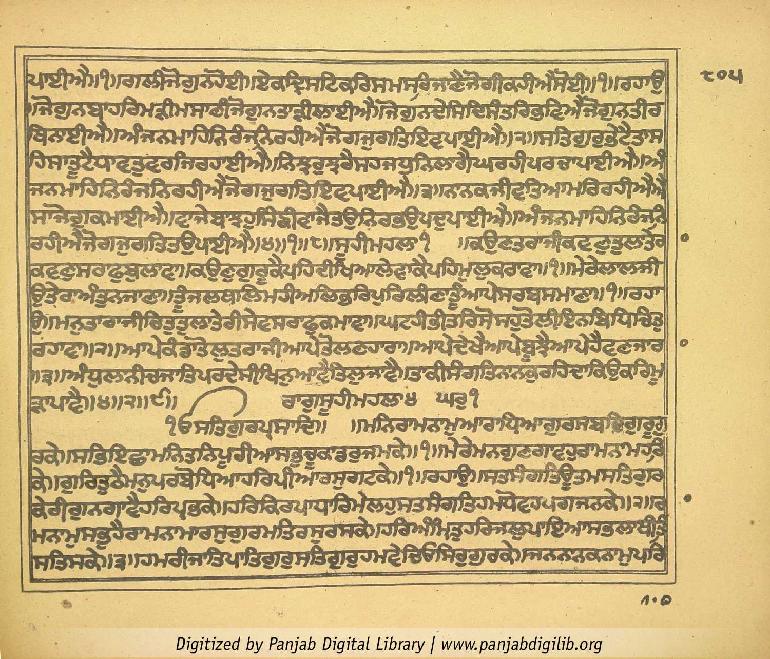 ਪਾਈਐ॥੧॥ਗਲੀਜੋਗੁਨਹੋਈ॥ਏਕਦ੍ਰਿਸਟਿਕਰਿਸਮਸਰਿਜਾਣੈਜੋਗੀਕਹੀਐਸੋਈ॥੧॥ਰਹਾਉ
॥ਜੋਗੁਨਬਾਹਰਿਮੜੀਮਸਾਣੀਜੋਗੁਨਤਾੜੀਲਾਈਐ॥ਜੋਗੁਨਦੇਸਿਦਿਸੰਤਰਿਭਵਿਐਜੋਗੁਨਤੀਰ
ਥਿਨਾਈਐ॥ਅੰਜਨਮਾਹਿਨਿਰੰਜਨਿਰਹੀਐਜੋਗਜੁਗਤਿਇਵਪਾਈਐ॥੨॥ਸਤਿਗੁਰੁਭੇਟੈਤਾਸ
ਹਸਾਤੂਟੈਧਾਵਤੁਵਰਜਿਰਹਾਈਐ॥ਨਿਝਰੁਝਰੈਸਹਜਧੁਨਿਲਾਗੈਘਰਹੀਪਰਚਾਪਾਈਐ॥ਅੰ
ਜਨਮਾਹਿਨਿਰੰਜਨਿਰਹੀਐਜੋਗਜੁਗਤਿਇਵਪਾਈਐ॥੩॥ਨਾਨਕਜੀਵਤਿਆਮਰਿਰਹੀਐਐ
ਸਾਜੋਗੁਕਮਾਈਐ॥ਵਾਜੇਬਾਝਹੁਸਿੰਙੀਵਾਜੈਤਉਨਿਰਭਉਪਦੁਪਾਈਐ॥ਅੰਜਨਮਾਹਿਨਿਰੰਜਨਿ
ਰਹੀਐਜੋਗਜੁਗਤਿਤਉਪਾਈਐ॥੪॥੧॥੮॥ਸੂਹੀਮਹਲਾ੧ ॥ਕਉਣਤਰਾਜੀਕਵਣੁਤੁਲਾਤੇਰਾ
ਕਵਣੁਸਰਾਫੁਬੁਲਾਵਾ॥ਕਉਣੁਗੁਰੂਕੈਪਹਿਦੀਖਿਆਲੇਵਾਕੈਪਹਿਮੁਲੁਕਰਾਵਾ॥੧॥ਮੇਰੇਲਾਲਜੀ
ਉਤੇਰਾਅੰਤੁਨਜਾਣਾ॥ਤੂੰਜਲਿਥਲਿਮਹੀਅਲਿਭਰਿਪੁਰਿਲੀਣਾਤੂੰਆਪੇਸਰਬਸਮਾਣਾ॥੧॥ਰਹਾ
ਉ॥ਮਨੁਤਾਰਾਜੀਚਿਤੁਤੁਲਾਤੇਰੀਸੇਵਸਰਾਫੁਕਮਾਵਾ॥ਘਟਹੀਭੀਤਰਿਸੋਸਹੁਤੋਲੀਇਨਬਿਧਿਚਿਤੁ
ਰਹਾਵਾ॥੨॥ਆਪੇਕੰਡਾਤੋਲੁਤਰਾਜੀਆਪੇਤੋਲਣਹਾਰਾ॥ਆਪੇਦੇਖੈਆਪੇਬੂਝੈਆਪੇਹੈਵਣਜਾਰਾ
॥੩॥ਅੰਧੁਲਾਨੀਚਜਾਤਿਪਰਦੇਸੀਖਿਨੁਆਵੈਤਿਲੁਜਾਵੈ॥ਤਾਕੀਸੰਗਤਿਨਾਨਕੁਰਹਦਾਕਿਉਕਰਿਮੂ
ੜਾਪਾਵੈ॥੪॥੨॥੯॥ ਰਾਗੁਸੂਹੀਮਹਲਾ੪ ਘਰੁ੧
ੴਸਤਿਗੁਰਪ੍ਰਸਾਦਿ॥ ॥ਮਨਿਰਾਮਨਾਮੁਆਰਾਧਿਆਗੁਰਸਬਦਿਗੁਰੂਗੁ
ਰਕੇ॥ਸਭਿਇਛਾਮਨਿਤਨਿਪੂਰੀਆਸਭੁਚੂਕਾਡਰੁਜਮਕੇ॥੧॥ਮੇਰੇਮਨਗੁਣਗਾਵਹੁਰਾਮਨਾਮਹਰਿ
ਕੇ॥ਗੁਰਿਤੁਠੈਮਨੁਪਰਬੋਧਿਆਹਰਿਪੀਆਰਸੁਗਟਕੇ॥੧॥ਰਹਾਉ॥ਸਤਸੰਗਤਿਊਤਮਸਤਿਗੁਰ
ਕੇਰੀਗੁਨਗਾਵੈਹਰਿਪ੍ਰਭਕੇ॥ਹਰਿਕਿਰਪਾਧਾਰਿਮੇਲਹੁਸਤਸੰਗਤਿਹਮਧੋਵਹਪਗਜਨਕੇ॥੨॥ਰਾ
ਮਨਾਮੁਸਭੁਹੈਰਾਮਨਾਮਾਰਸੁਗੁਰਮਤਿਰਸੁਰਸਕੇ॥ਹਰਿਅੰਮ੍ਰਿਤੁਹਰਿਜਲੁਪਾਇਆਸਭਲਾਥੀਤਿ
ਸਤਿਸਕੇ॥੩॥ਹਮਰੀਜਾਤਿਪਾਤਿਗੁਰੁਸਤਿਗੁਰੁਹਮਵੇਚਿਓਸਿਰੁਗੁਰਕੇ॥ਜਨਨਾਨਕਨਾਮੁਪਰਿ
੮੦੫
Digitized by Panjab Digital Library | www.panjabdigilib.org